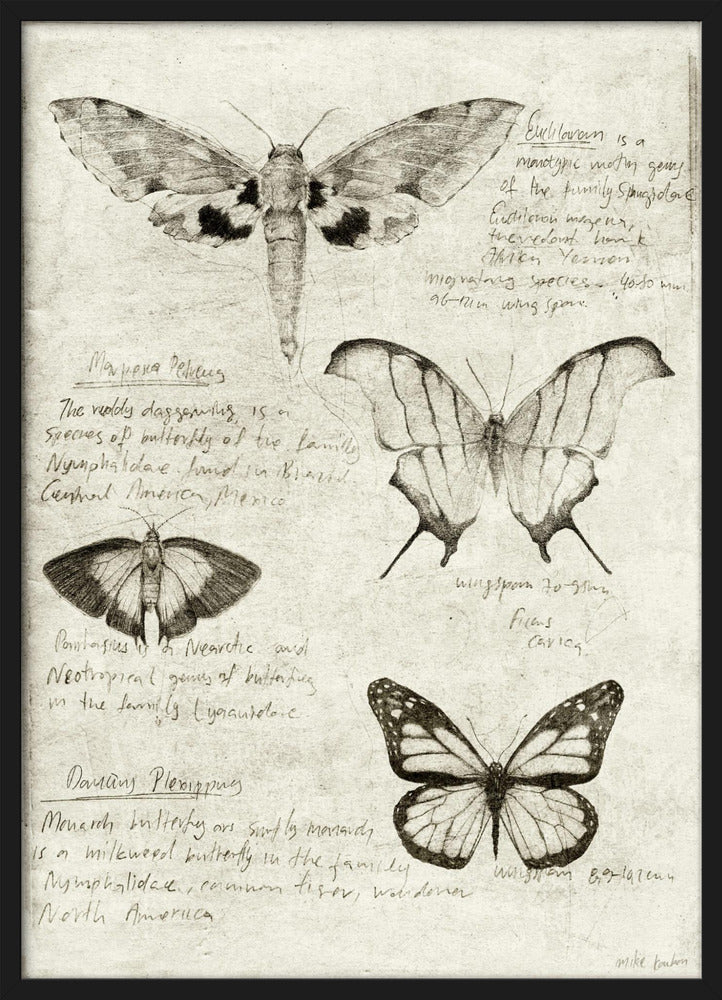 Euchloron is a
monotypic moth genus
of the family Sphingidae
Euchloron megaera,
the verdant hawk
African Yemen
migrating species.
wing span
Marpesia Petreus
The ruddy daggerwing, is a
species of butterfly of the family
Nymphalidae. found in Brazil.
Central America, Mexico
wingspan 70-95mm
Ficus
carica
Panthiades is a Nearctic and
Neotropical genus of butterfly
in the family Lycaenidae
Danaus Plexippus
Monarch butterfly or simply monarch
is a milkweed butterfly in the family
Nymphalidae, common tiger, wanderer
North America
wingspan
mike